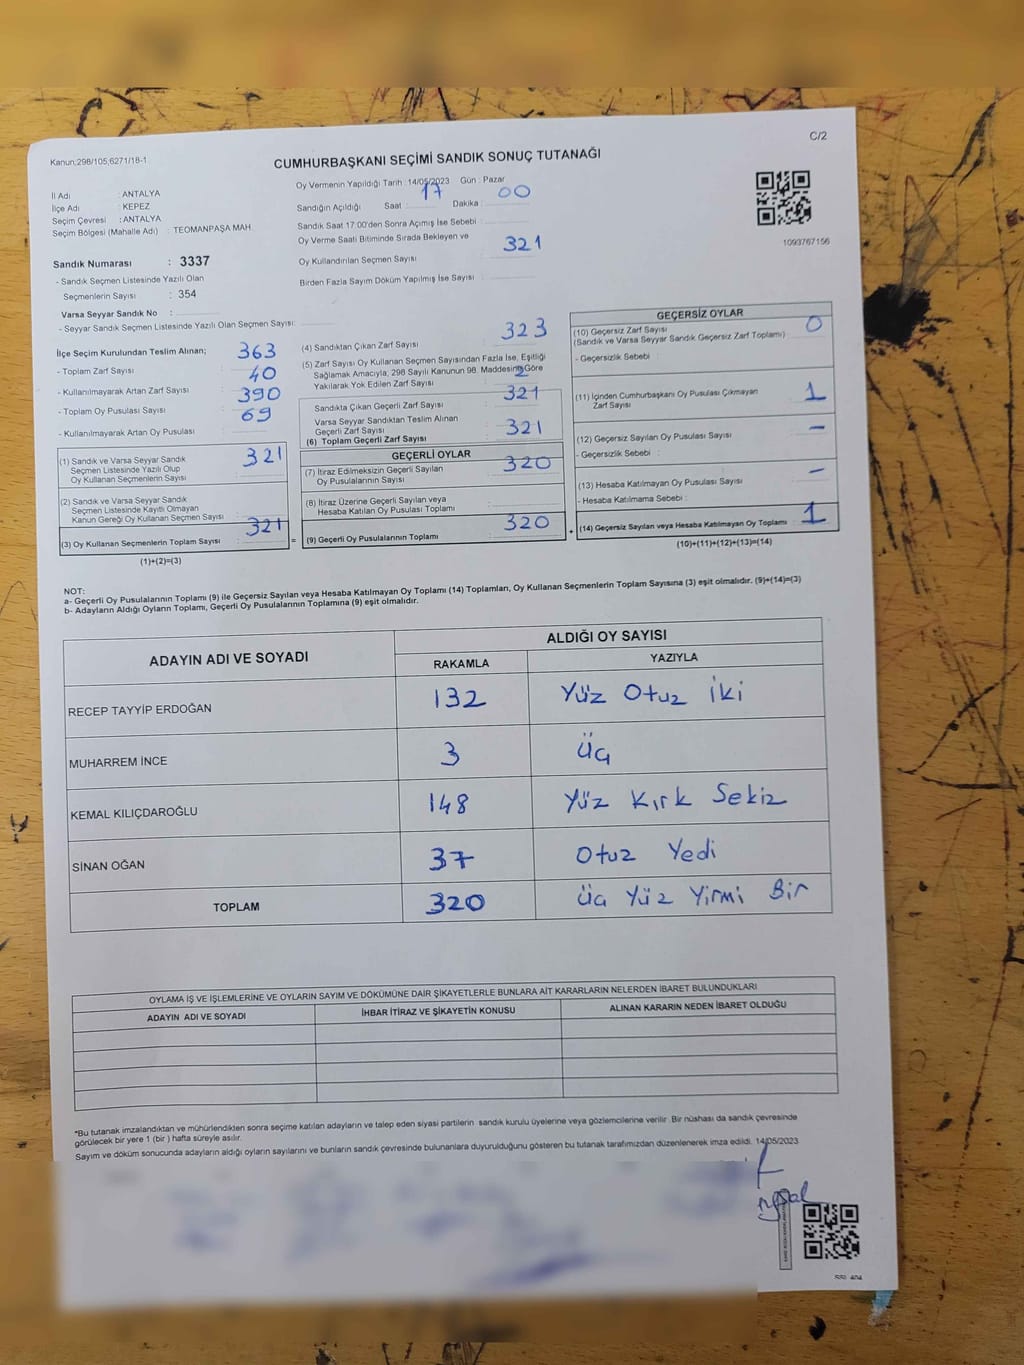 C/2
Kanun:298/105,6271/18-1
CUMHURBAŞKANI SEÇİMİ SANDIK SONUÇ TUTANAĞI
İl Adı : ANTALYA
İlçe Adı : KEPEZ
Seçim Çevresi : ANTALYA
Seçim Bölgesi (Mahalle Adı) : TEOMANPAŞA MAH.
Oy Vermenin Yapıldığı Tarih : 14/05/2023 Gün : Pazar
Sandığın Açıldığı Saat : 17 Dakika : 00
Sandık Saat 17:00'den Sonra Açımış İse Sebebi :
Oy Verme Saati Bitiminde Sırada Bekleyen ve
Oy Kullandırılan Seçmen Sayısı : 321
Birden Fazla Sayım Döküm Yapılmış İse Sayısı :
1093767156
Sandık Numarası : 3337
- Sandık Seçmen Listesinde Yazılı Olan
Seçmenlerin Sayısı : 354
Varsa Seyyar Sandık No :
- Seyyar Sandık Seçmen Listesinde Yazılı Olan Seçmen Sayısı:
İlçe Seçim Kurulundan Teslim Alınan;
- Toplam Zarf Sayısı : 363
- Kullanılmayarak Artan Zarf Sayısı : 40
- Toplam Oy Pusulası Sayısı : 390
- Kullanılmayarak Artan Oy Pusulası : 69
(1) Sandık ve Varsa Seyyar Sandık
Seçmen Listesinde Yazılı Olup
Oy Kullanan Seçmenlerin Sayısı : 321
(2) Sandık ve Varsa Seyyar Sandık
Seçmen Listesinde Kayıtlı Olmayan
Kanun Gereği Oy Kullanan Seçmen Sayısı :
(3) Oy Kullanan Seçmenlerin Toplam Sayısı : 321
(1)+(2)=(3)
=
(4) Sandıktan Çıkan Zarf Sayısı : 323
(5) Zarf Sayısı Oy Kullanan Seçmen Sayısından Fazla İse, Eşitliği
Sağlamak Amacıyla, 298 Sayılı Kanunun 98. Maddesine Göre
Yakılarak Yok Edilen Zarf Sayısı : 2
Sandıkta Çıkan Geçerli Zarf Sayısı : 321
Varsa Seyyar Sandıktan Teslim Alınan
Geçerli Zarf Sayısı :
(6) Toplam Geçerli Zarf Sayısı : 321
GEÇERLİ OYLAR
(7) İtiraz Edilmeksizin Geçerli Sayılan
Oy Pusulalarının Sayısı : 320
(8) İtiraz Üzerine Geçerli Sayılan veya
Hesaba Katılan Oy Pusulası Toplamı :
(9) Geçerli Oy Pusulalarının Toplamı : 320
+
GEÇERSİZ OYLAR
(10) Geçersiz Zarf Sayısı : 0
(Sandık ve Varsa Seyyar Sandık Geçersiz Zarf Toplamı)
- Geçersizlik Sebebi :
(11) İçinden Cumhurbaşkanı Oy Pusulası Çıkmayan
Zarf Sayısı : 1
(12) Geçersiz Sayılan Oy Pusulası Sayısı : –
- Geçersizlik Sebebi :
(13) Hesaba Katılmayan Oy Pusulası Sayısı : –
- Hesaba Katılmama Sebebi :
(14) Geçersiz Sayılan veya Hesaba Katılmayan Oy Toplamı : 1
(10)+(11)+(12)+(13)=(14)
NOT:
a- Geçerli Oy Pusulalarının Toplamı (9) ile Geçersiz Sayılan veya Hesaba Katılmayan Oy Toplamı (14) Toplamları, Oy Kullanan Seçmenlerin Toplam Sayısına (3) eşit olmalıdır. (9)+(14)=(3)
b- Adayların Aldığı Oyların Toplamı, Geçerli Oy Pusulalarının Toplamına (9) eşit olmalıdır.
ADAYIN ADI VE SOYADI
ALDIĞI OY SAYISI
RAKAMLA YAZIYLA
RECEP TAYYİP ERDOĞAN 132 Yüz Otuz İki
MUHARREM İNCE 3 Üç
KEMAL KILIÇDAROĞLU 148 Yüz Kırk Sekiz
SİNAN OĞAN 37 Otuz Yedi
TOPLAM 320 Üç Yüz Yirmi Bir
OYLAMA İŞ VE İŞLEMLERİNE VE OYLARIN SAYIM VE DÖKÜMÜNE DAİR ŞİKAYETLERLE BUNLARA AİT KARARLARIN NELERDEN İBARET BULUNDUKLARI
ADAYIN ADI VE SOYADI İHBAR İTİRAZ VE ŞİKAYETİN KONUSU ALINAN KARARIN NEDEN İBARET OLDUĞU
*Bu tutanak imzalandıktan ve mühürlendikten sonra seçime katılan adayların ve talep eden siyasi partilerin sandık kurulu üyelerine veya gözlemcilerine verilir. Bir nüshası da sandık çevresinde
görülecek bir yere 1 (bir ) hafta süreyle asılır.
Sayım ve döküm sonucunda adayların aldığı oyların sayılarını ve bunların sandık çevresinde bulunanlara duyurulduğunu gösteren bu tutanak tarafımızdan düzenlenerek imza edildi. 14/05/2023